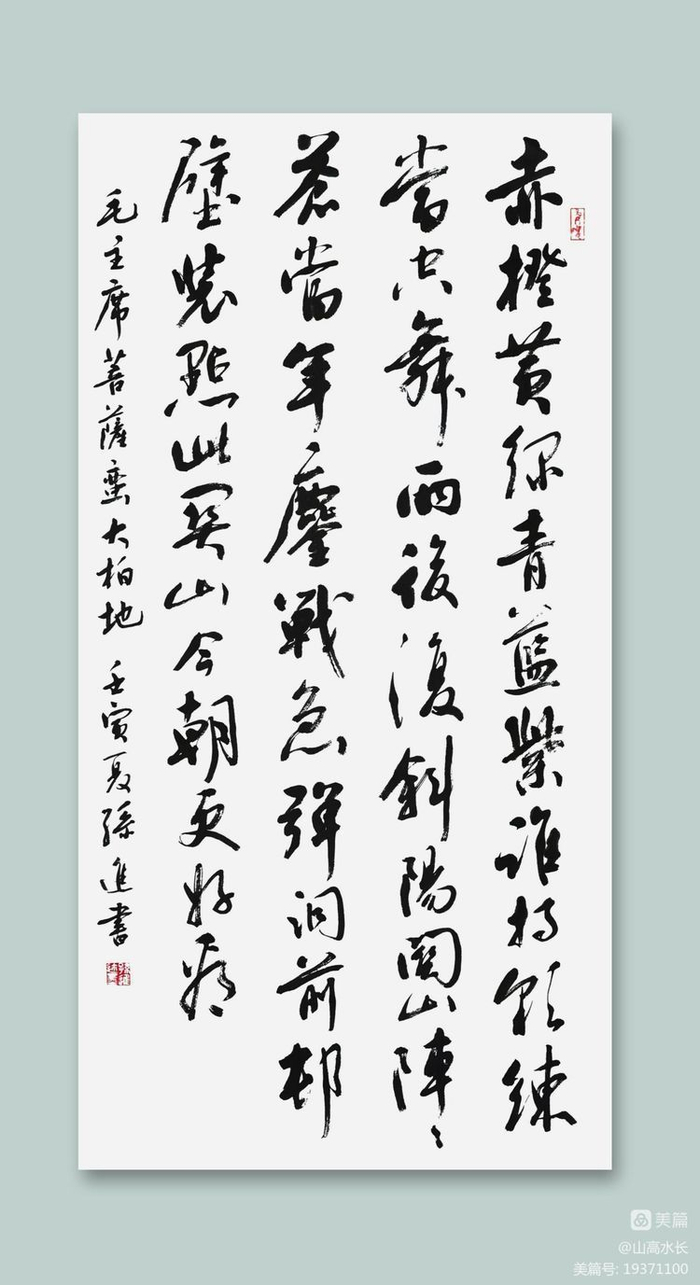 赤橙黃綠青藍紫誰持彩練
當空舞雨後復斜陽關山陣〻
蒼當年鏖戰急彈洞前邨
壁裝點此關山今朝更好看
毛主席菩薩蠻大柏地 壬寅夏孫進書
美篇
@山高水长
美篇号: 19371100